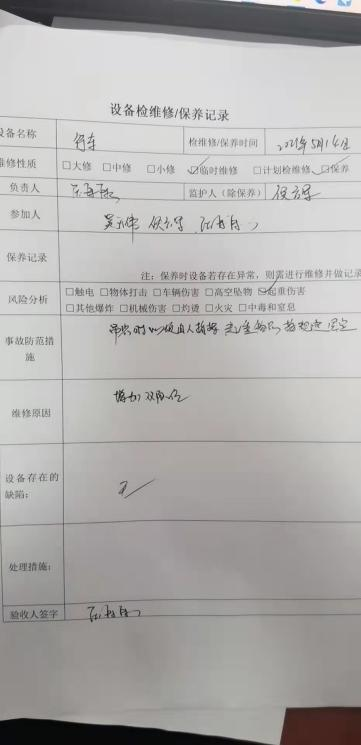 设备检维修/保养记录
设备名称 行车 检维修/保养时间 2021年5月14日
维修性质 □大修 □中修 □小修 ☑临时维修 □计划检维修 ☑保养
负责人 监护人（除保养）
参加人
保养记录
注：保养时设备若存在异常，则需进行维修并做记录
风险分析 □触电 □物体打击 □车辆伤害 □高空坠物 ☑起重伤害
□其他爆炸 □机械伤害 □灼烫 □火灾 □中毒和窒息
事故防范措
施
维修原因 增加双限位
设备存在的
缺陷： 无
处理措施：
验收人签字